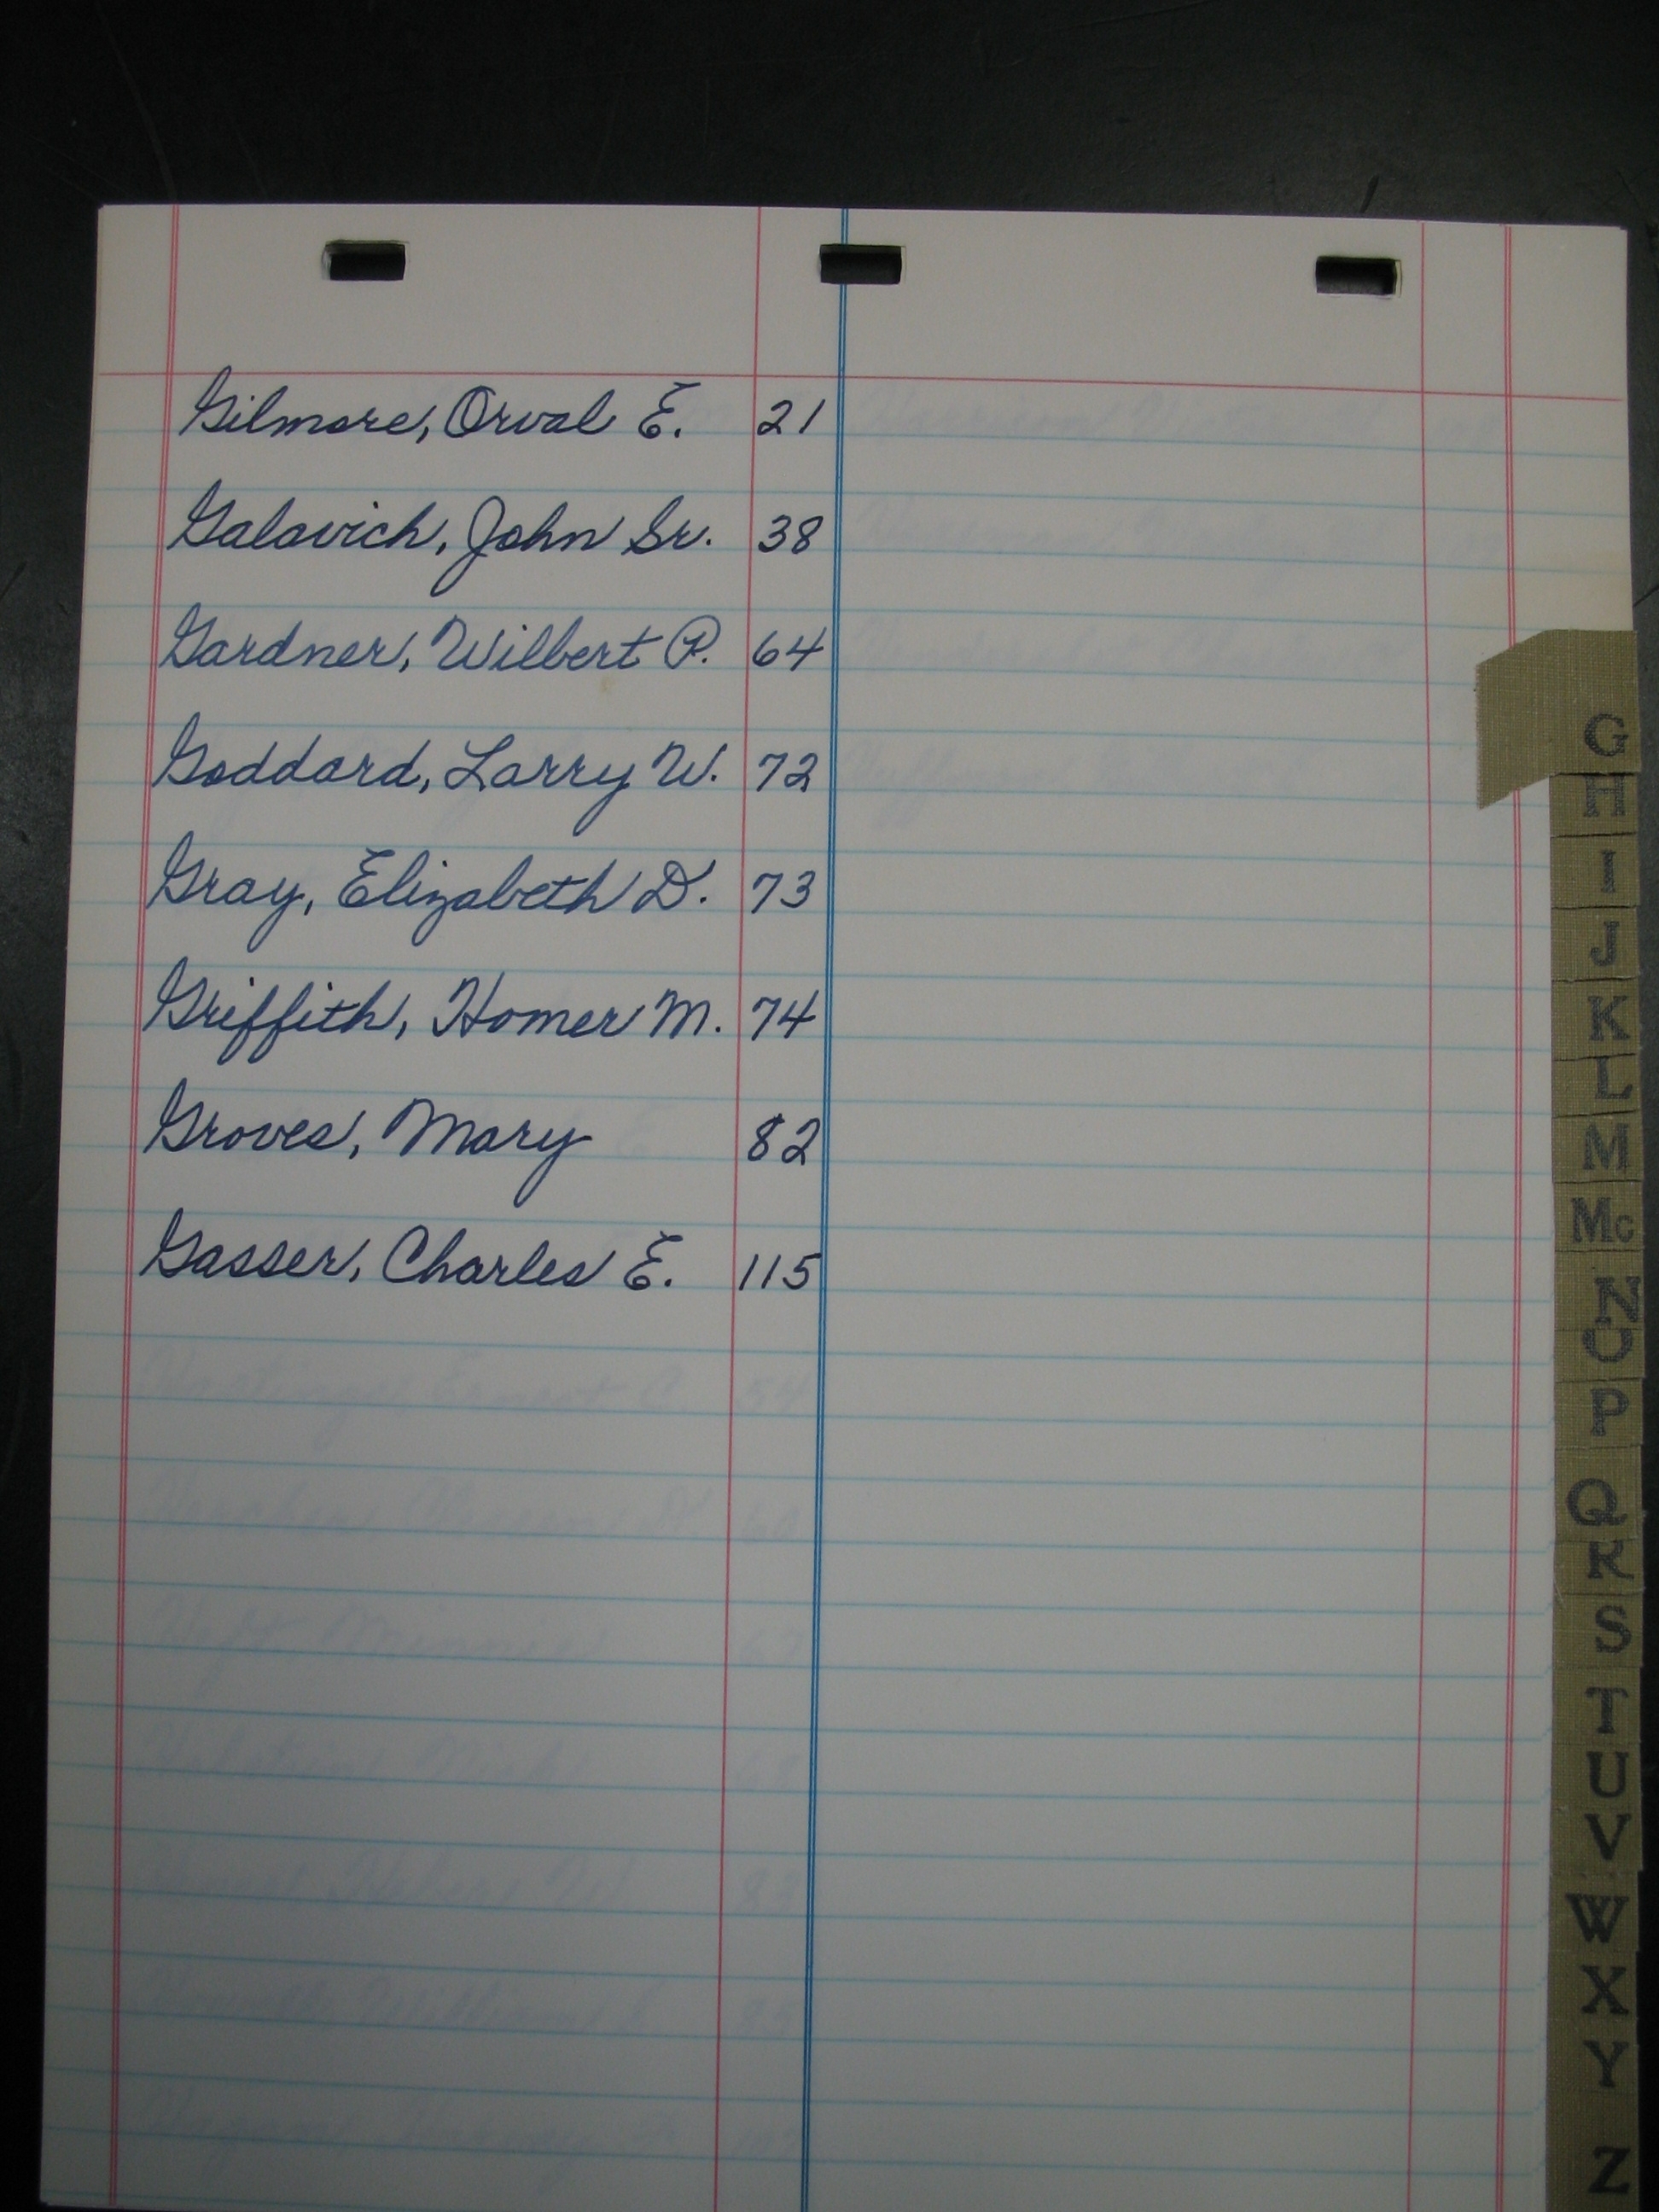 Gilmore, Orval E. 21
Galovich, John Sr. 38
Gardner, Wilbert P. 64
Goddard, Larry W. 72
Gray, Elizabeth D. 73
Griffith, Homer M. 74
Groves, Mary 82
Gasser, Charles E. 115
G
H
I
J
K
L
M
Mc
N
O
P
Q
R
S
T
U
V
W
X
Y
Z